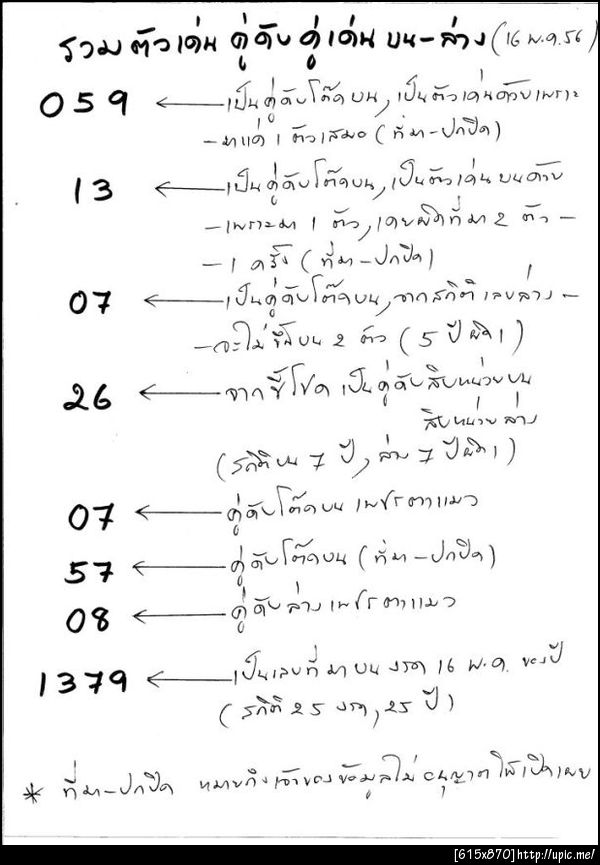 รวมตัวเด่น คู่ดับ คู่เด่น บน-ล่าง (16 พ.ค.56)
059 ← เป็นคู่ดับโต๊ดบน, เป็นตัวเด่นด้วยเพราะ
- มาแค่ 1 ตัวเสมอ (ที่มา-ปกปิด)
13 ← เป็นคู่ดับโต๊ดบน, เป็นตัวเด่นบนด้วย
- เพราะมา 1 ตัว, เคยผิดที่มา 2 ตัว -
- 1 ครั้ง (ที่มา-ปกปิด)
07 ← เป็นคู่ดับโต๊ดบน, จากสถิติเลขล่าง -
- จะไม่ขึ้นบน 2 ตัว (5 ปีผิด 1)
26 ← จากชี้โชค เป็นคู่ดับสิบหน่วยบน
สิบหน่วยล่าง
(สถิติบน 7 ปี, ล่าง 7 ปีผิด 1)
07 ← คู่ดับโต๊ดบน เพชรตาแมว
57 ← คู่ดับโต๊ดบน (ที่มา-ปกปิด)
08 ← คู่ดับล่าง เพชรตาแมว
1379 ← เป็นเลขที่มาบน งวด 16 พ.ค. ของปี
(สถิติ 25 งวด, 25 ปี)
* ที่มา-ปกปิด หมายถึงเจ้าของข้อมูลไม่อนุญาตให้เปิดเผย
[615x870]http://upic.me/